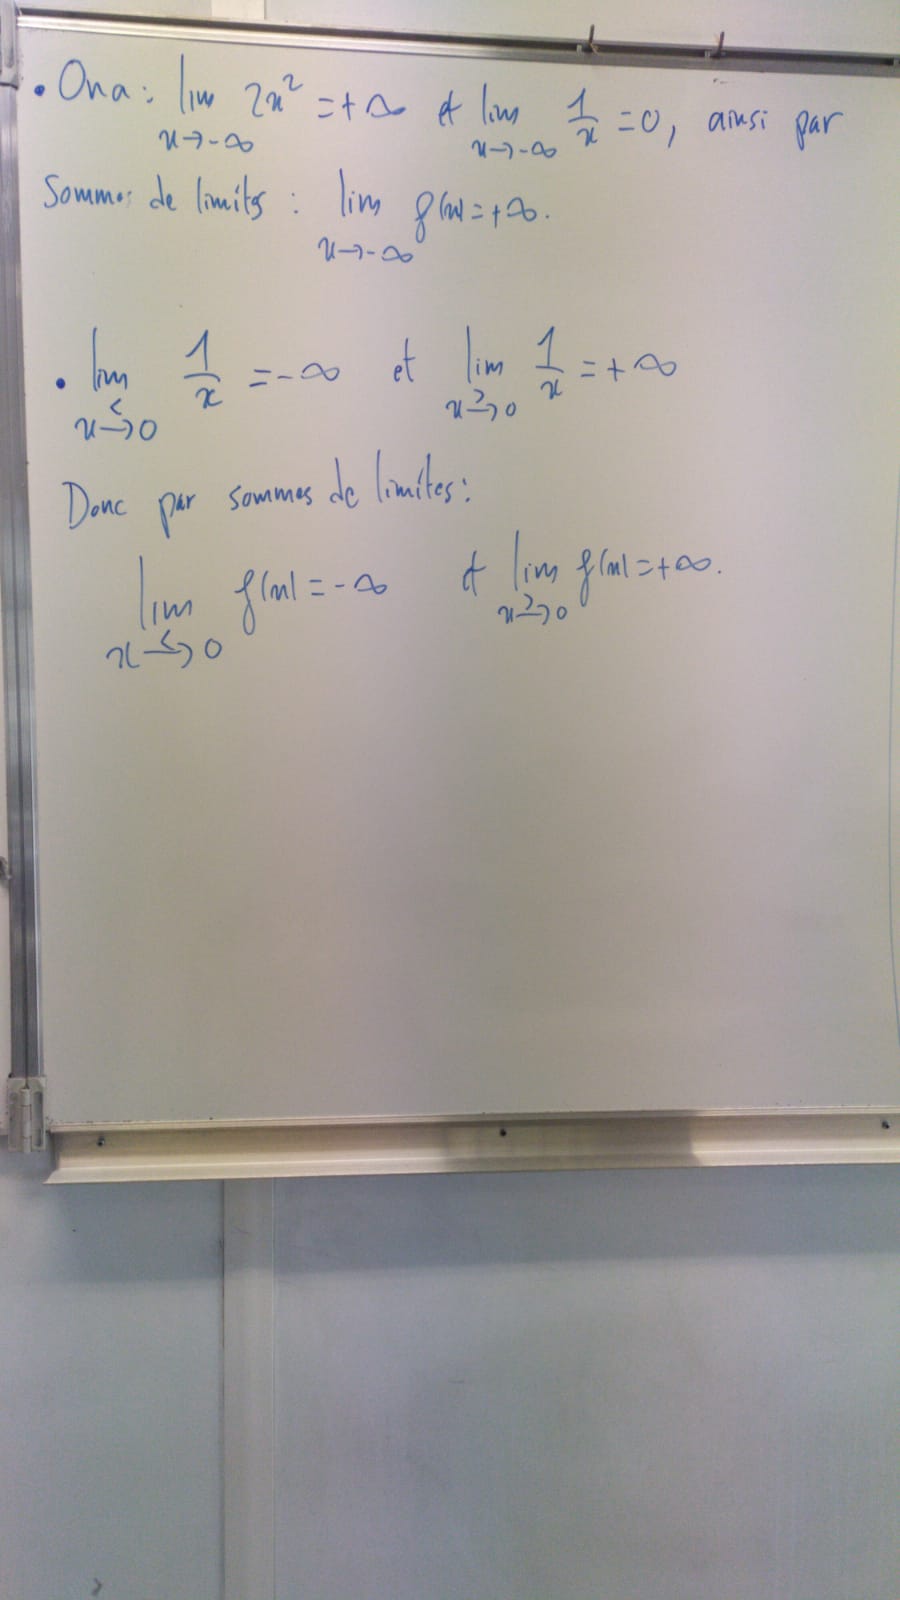 • On a : lim 2x² = +∞ et lim 1/x = 0, ainsi par
x→-∞ x→-∞
sommes de limites : lim f(x) = +∞.
x→-∞
• lim 1/x = -∞ et lim 1/x = +∞
x→0 < x→0 >
Donc par sommes de limites :
lim f(x) = -∞ et lim f(x) = +∞.
x→0 < x→0 >